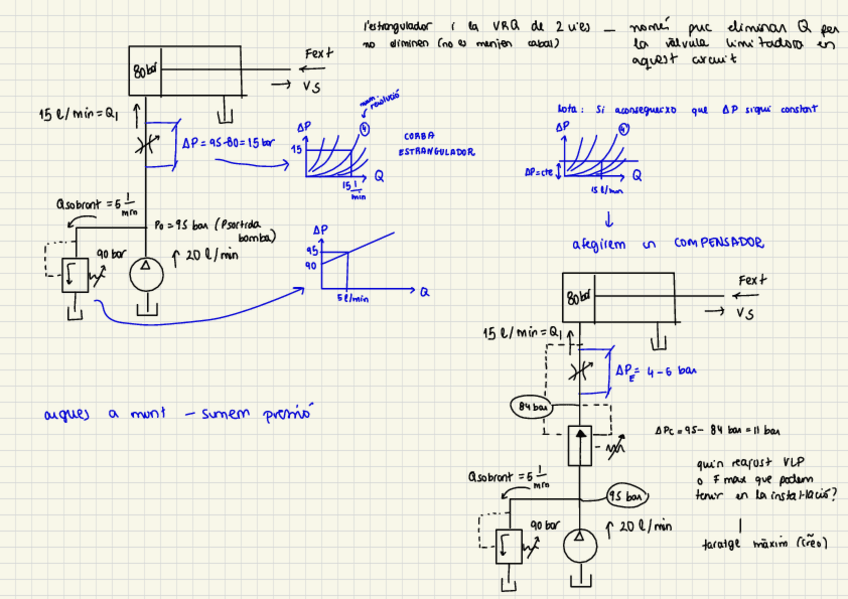 l'estrangulador i la VRQ de 2 vies — només puc eliminar Q per
no eliminen (no es mengen cabal)
la vàlvula limitadora en
aquest circuit
80 bar
Fext
VS
15 l/min = Q1
ΔP = 95-80 = 15 bar
ΔP
15
Q
15 l/min
resolució
CORBA
ESTRANGULADOR
Nota: Si aconsegueixo que ΔP sigui constant
ΔP
ΔP=cte
Q
15 l/min
afegirem un COMPENSADOR
Qsobrant = 5 l/min
Po = 95 bar (Psortida
bomba)
90 bar
20 l/min
ΔP
95
90
5 l/min
Q
aigües a munt — sumem pressió
80 bar
Fext
VS
15 l/min = Q1
ΔPE = 4-6 bar
84 bar
ΔPc = 95 - 84 bar = 11 bar
Qsobrant = 5 l/min
95 bar
90 bar
20 l/min
quin reajust VLP
o F max que podem
tenir en la instal·lació?
taratge màxim (creo)